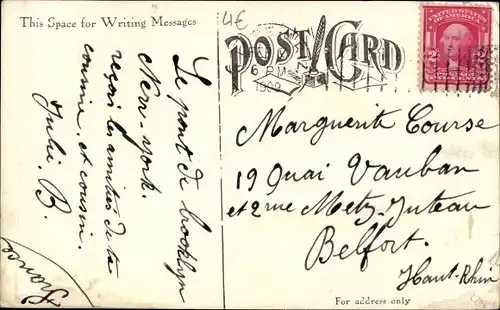 This Space for Writing Messages
4€
POST CARD
6 PM
1909
UNITED STATES
OF AMERICA
Le pont de brooklyn
New-york.
reçois les amitiés de ta
cousine et cousin.
Julie. B.
Marguerite Course
19 Quai Vauban
et 2 rue Metz-Juteau
Belfort.
Haut-Rhin
France
For address only